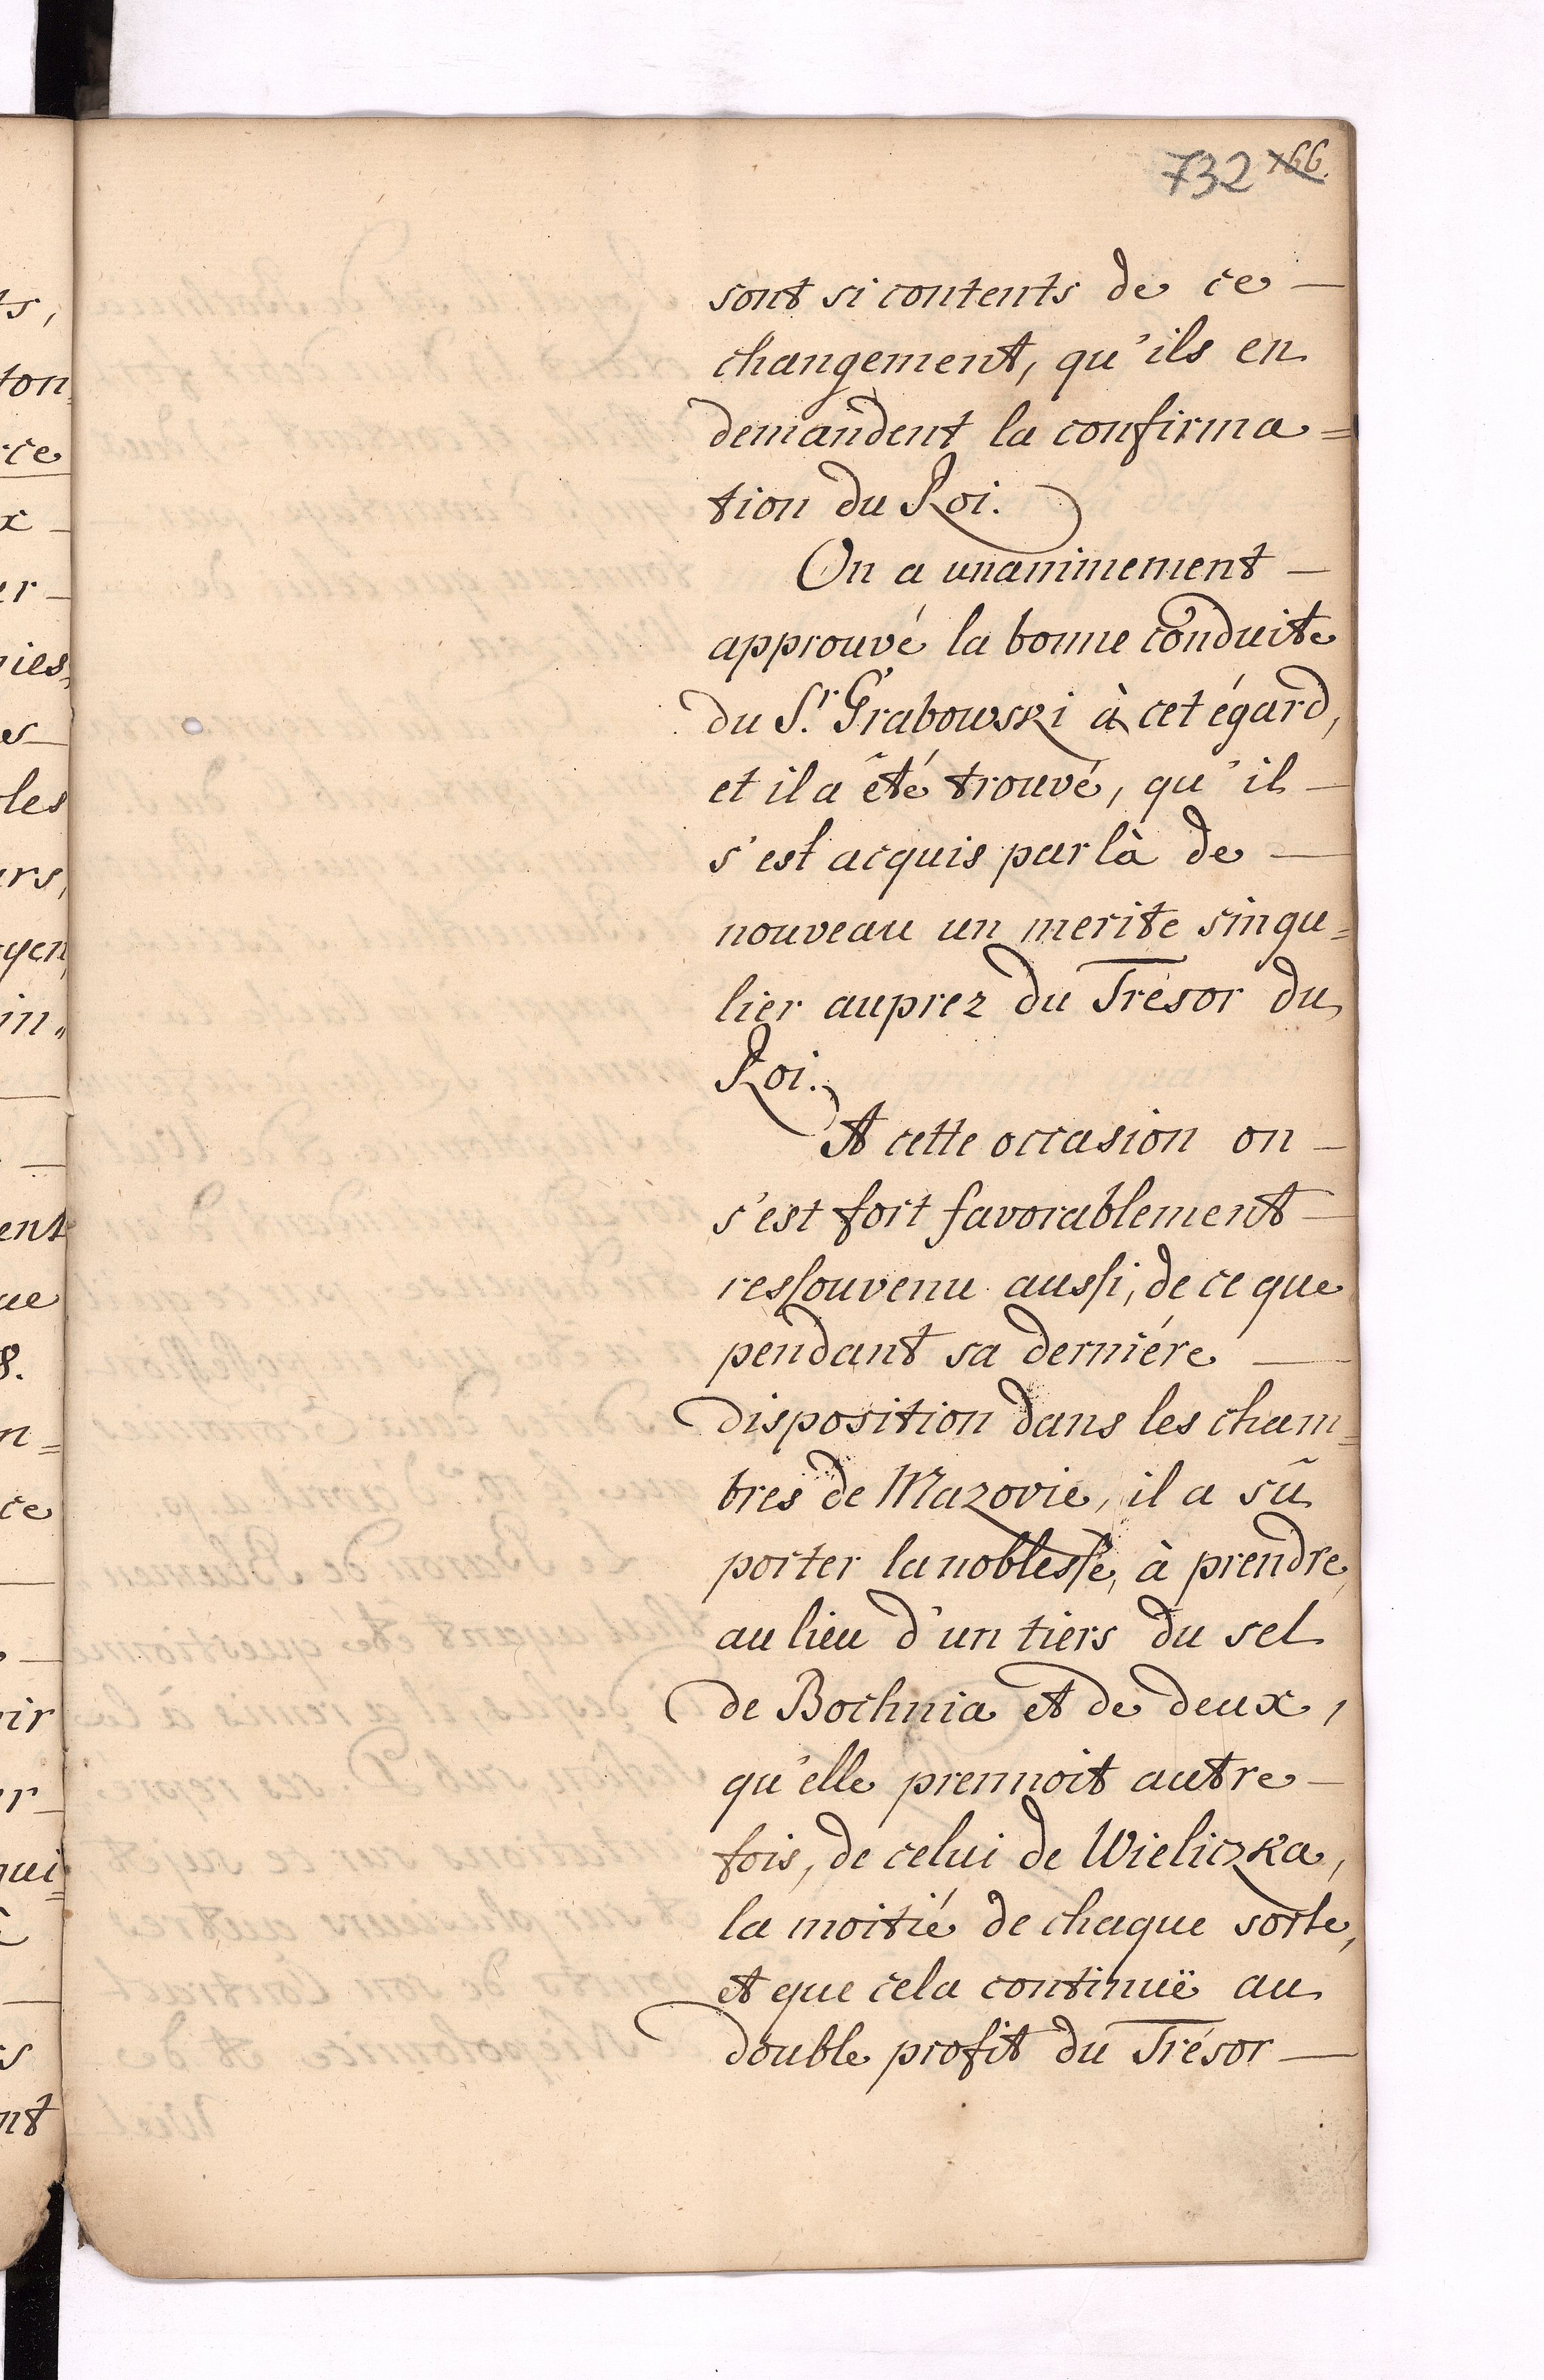 732 766.
sont si contents de ce —
changement, qu'ils en
demandent la confirma=
tion du Roi.
On a unanimement —
approuvé la bonne conduite
du S.r Grabowski à cet égard,
et il a été trouvé, qu'il —
s'est acquis par là de —
nouveau un merite singu=
lier auprez du Trésor du
Roi.
A cette occasion on —
s'est fort favorablement —
ressouvenu aussi, de ce que
pendant sa derniére —
disposition dans les cham=
bres de Mazovie, il a sû
porter la noblesse, à prendre,
au lieu d'un tiers du sel
de Bochnia et de deux,
qu'elle prennoit autre —
fois, de celui de Wieliczka,
la moitié de chaque sorte,
et que cela continuë au
double profit du Trésor —